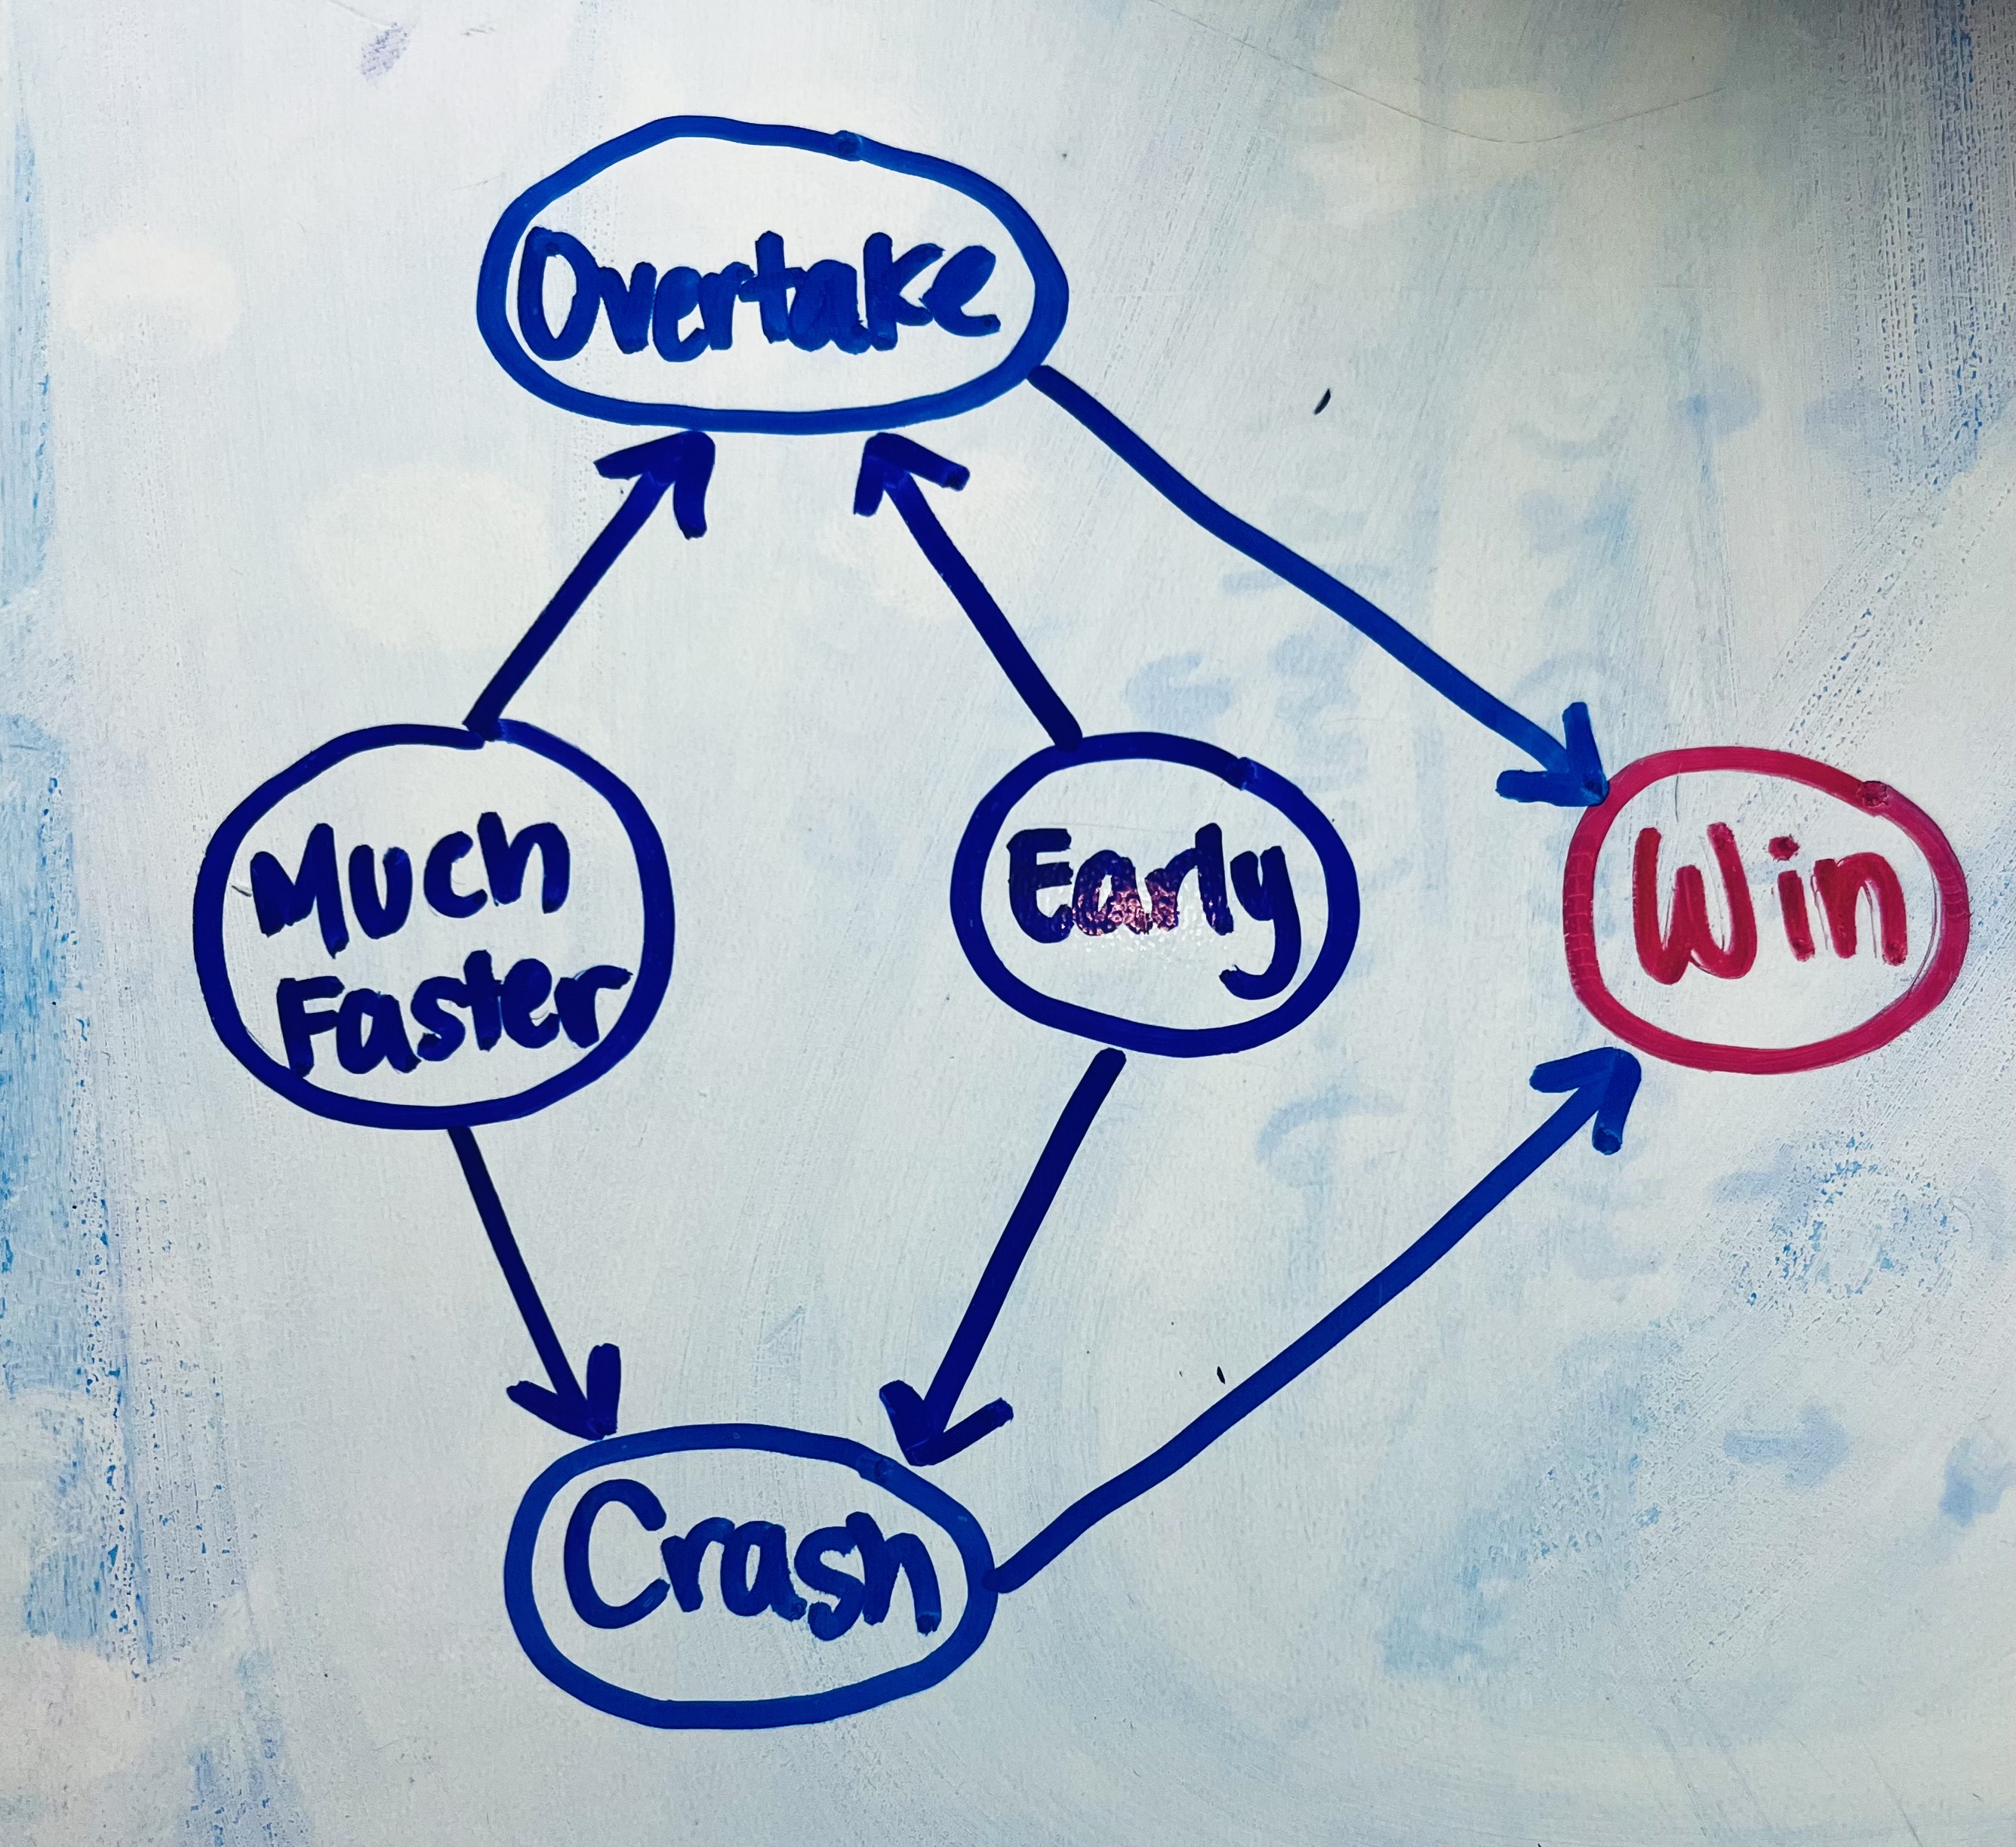 Overtake
Much
Faster
Early
Win
Crash